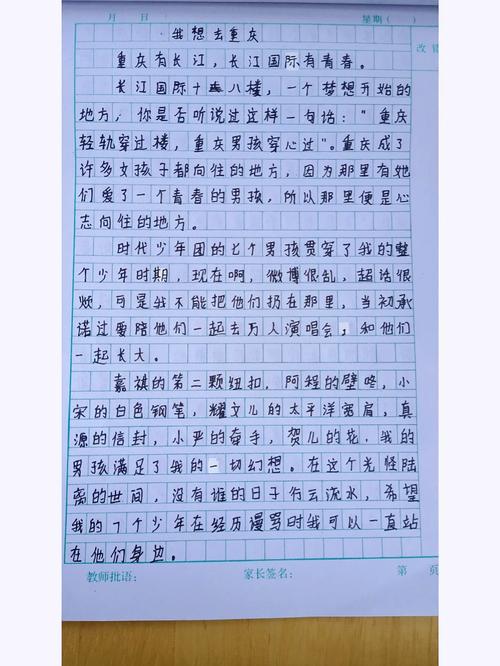 月 日 星期( )
改错
我想去重庆
重庆有长江，长江国际有青春。
长江国际十八楼，一个梦想开始的
地方，你是否听说过这样一句话："重庆
轻轨穿过楼，重庆男孩穿心过"。重庆成了
许多女孩子都向往的地方，因为那里有她
们爱了一个青春的男孩，所以那里便是心
志向往的地方。
时代少年团的七个男孩贯穿了我的整
个少年时期，现在啊，微博很乱，超话很
烦，可是我不能把他们扔在那里，当初承
诺过要陪他们一起去万人演唱会，和他们
一起长大。
嘉祺的第二颗纽扣，阿程的壁咚，小
宋的白色钢笔，耀文儿的太平洋宽肩，真
源的信封，小严的牵手，贺儿的花，我的
男孩满足了我的一切幻想。在这个光怪陆
离的世间，没有谁的日子行云流水，希望
我的7个少年在经历谩骂时我可以一直站
在他们身边。
教师批语： 家长签名： 第 页